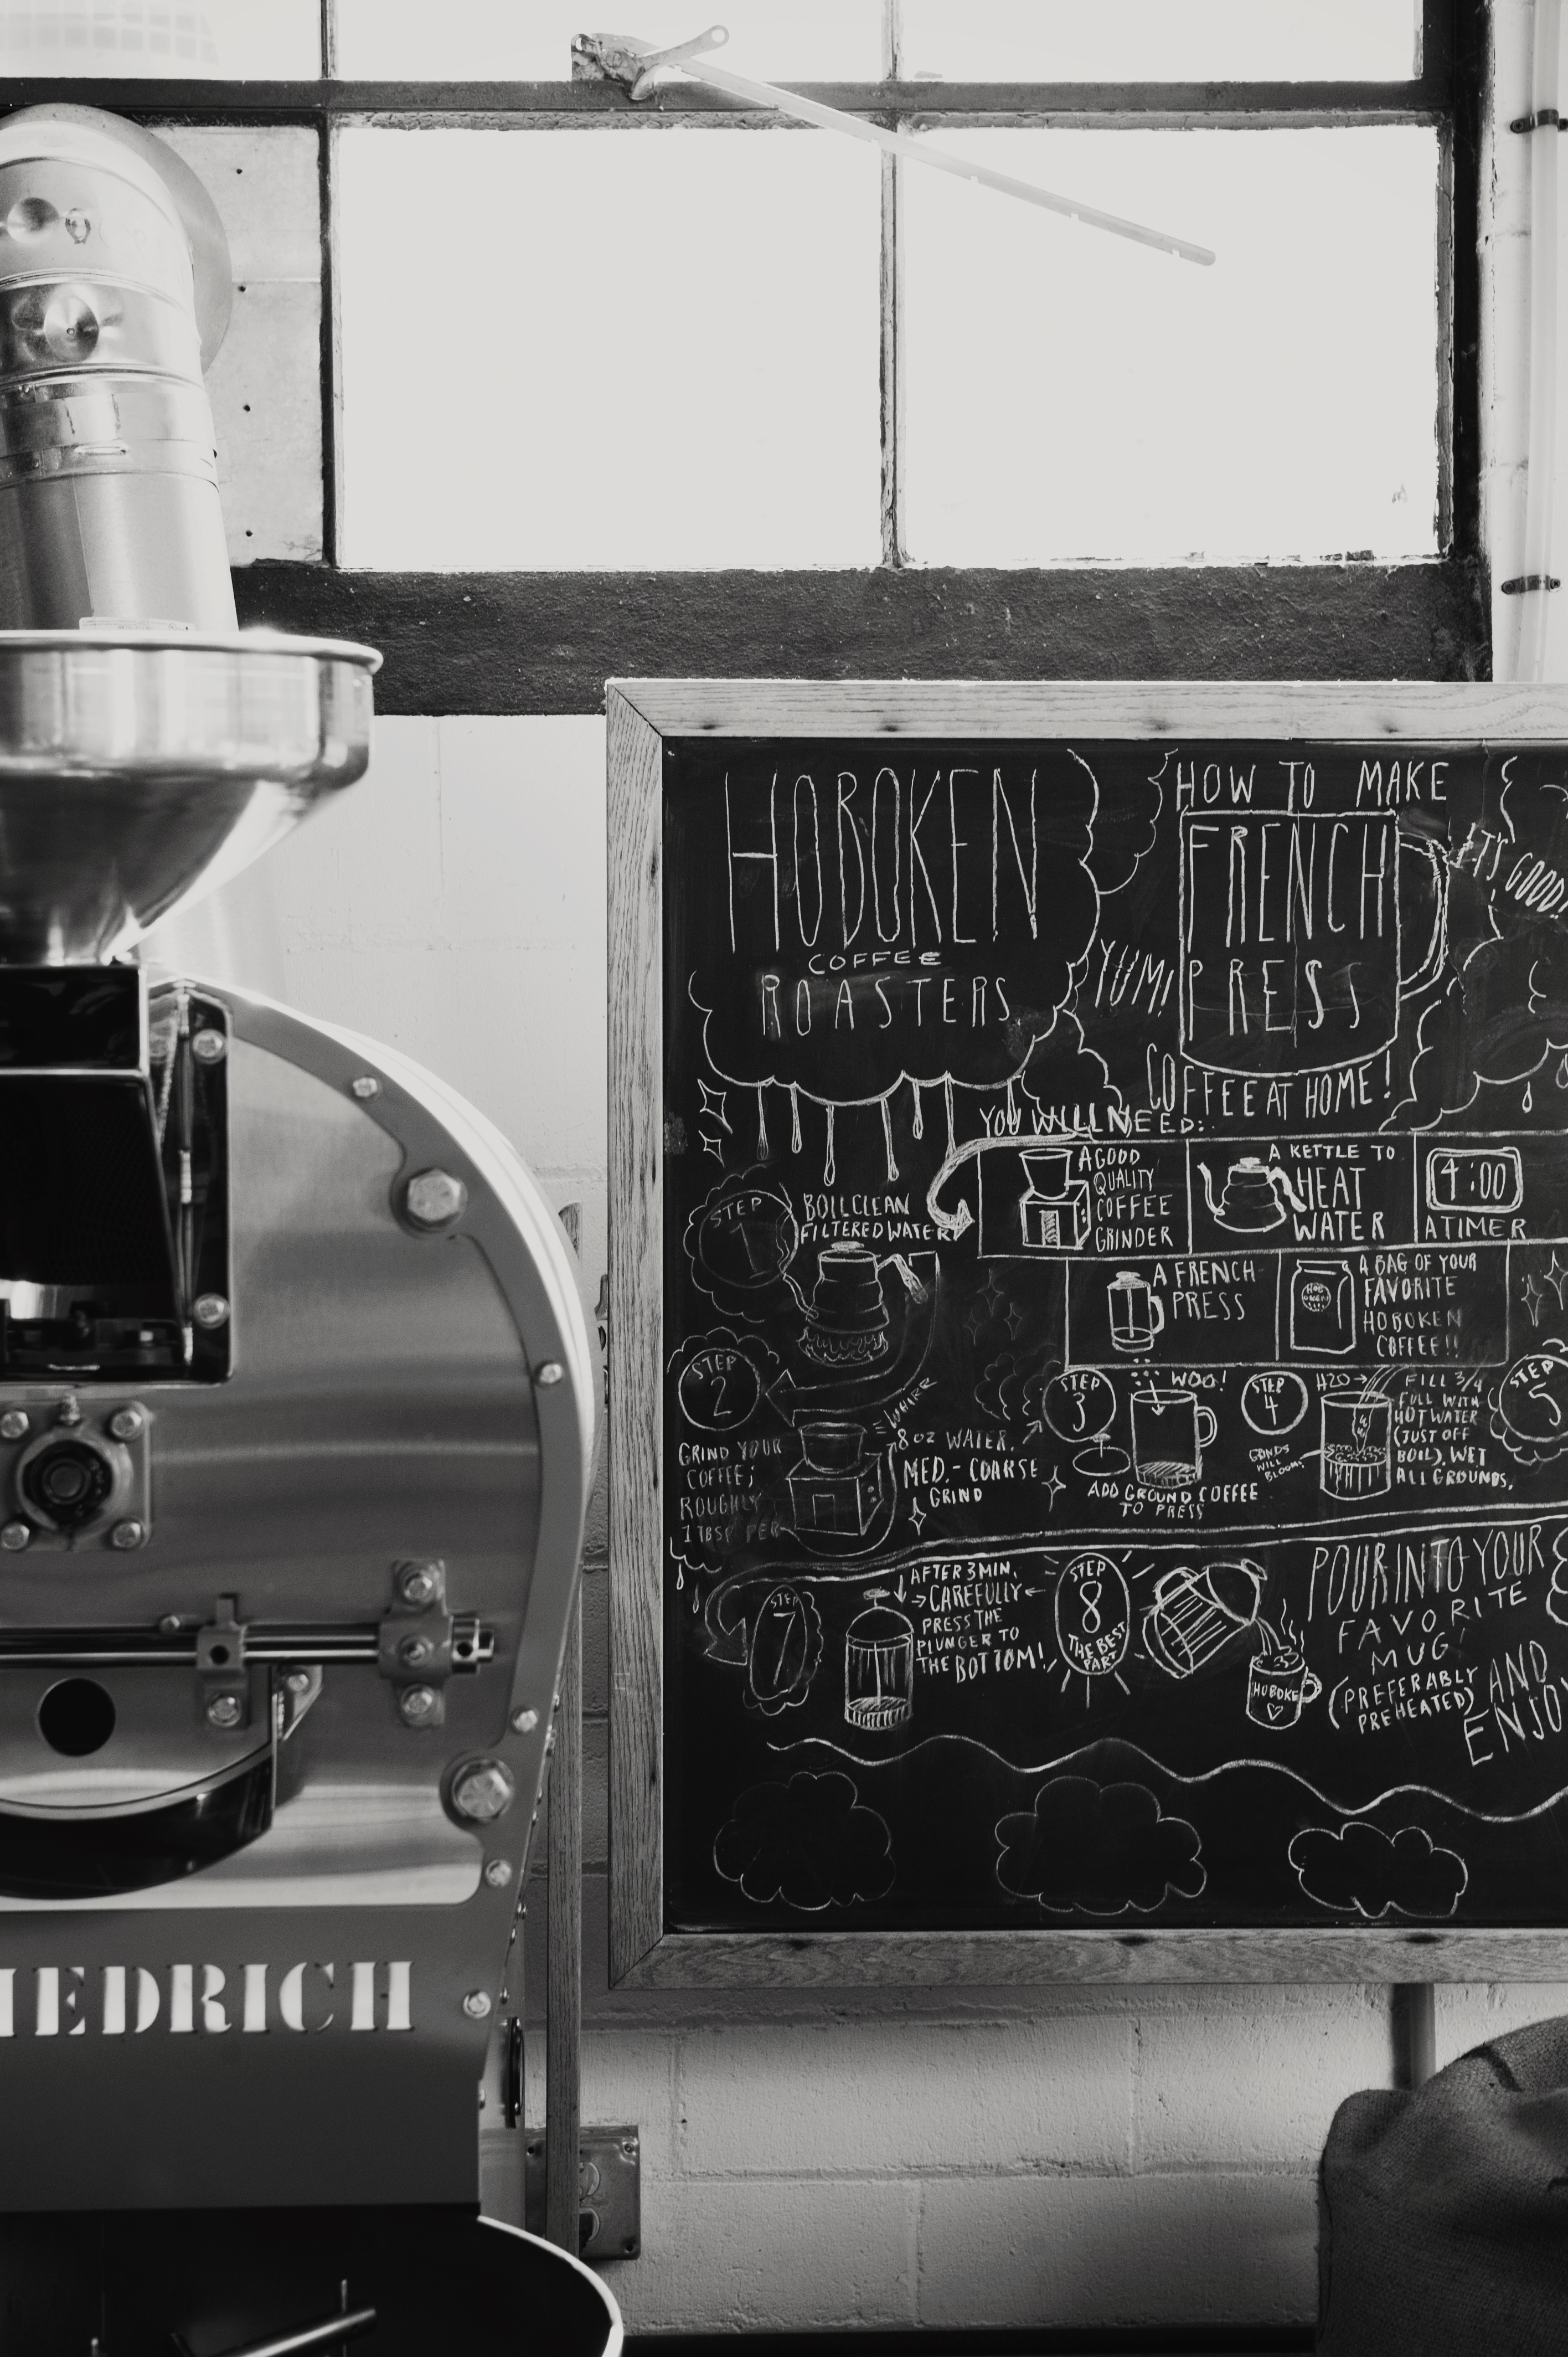 HOBOKEN
COFFEE
ROASTERS
HOW TO MAKE
FRENCH
PRESS
COFFEE AT HOME!
YUM!
IT'S
GOOD!
YOU WILL NEED:
A GOOD
QUALITY
COFFEE
GRINDER
A KETTLE TO
HEAT
WATER
4:00
A TIMER
A FRENCH
PRESS
HOB
OKEN
A BAG OF YOUR
FAVORITE
HOBOKEN
COFFEE!!
STEP
1
BOIL CLEAN
FILTERED WATER
STEP
2
GRIND YOUR
COFFEE;
ROUGHLY
1 TBSP PER
WHIRR
8 OZ WATER.
MED.-COARSE
GRIND
STEP
3
WOO!
ADD GROUND COFFEE
TO PRESS
STEP
4
H2O
GRNDS
WILL
BLOOM
FILL 3/4
FULL WITH
HOT WATER
(JUST OFF
BOIL). WET
ALL GROUNDS.
STEP
5
STEP
7
AFTER 3 MIN.
CAREFULLY
PRESS THE
PLUNGER TO
THE BOTTOM!
STEP
8
THE BEST
PART
HOBOKE
POUR INTO YOUR
FAVORITE
MUG
(PREFERABLY
PREHEATED)
AND
ENJO
IEDRICH